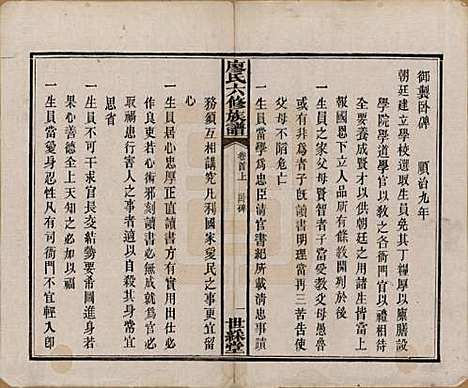 御製臥碑　順治九年
朝廷建立學校選取生員免其丁糧厚以廪膳設
學院學道學官以敎之各衙門官以禮相待
全要養成賢才以供朝廷之用諸生皆當上
報國恩下立人品所有條敎開列於後
一生員之家父母賢智者子當受敎父母愚魯
或有非爲者子旣讀書明理當再三苦告使
父母不陷危亡
一生員當學爲忠臣淸官書紀所載淸忠事
務須互相講究凡國家愛民之事更宜留
心
一生員居心忠厚正直讀書方有實用出仕
必作良吏若心術邪刻讀書必無成就爲官必
取禍患行害人之事者適以自殺其身常宜
思省
一生員不可干求官長交結勢要希圖進身若
果心善德全上天知之必加以福
一生員凡有司衙門不宜輕入卽
廖氏六修族譜
卷首上　臥碑
世綵堂